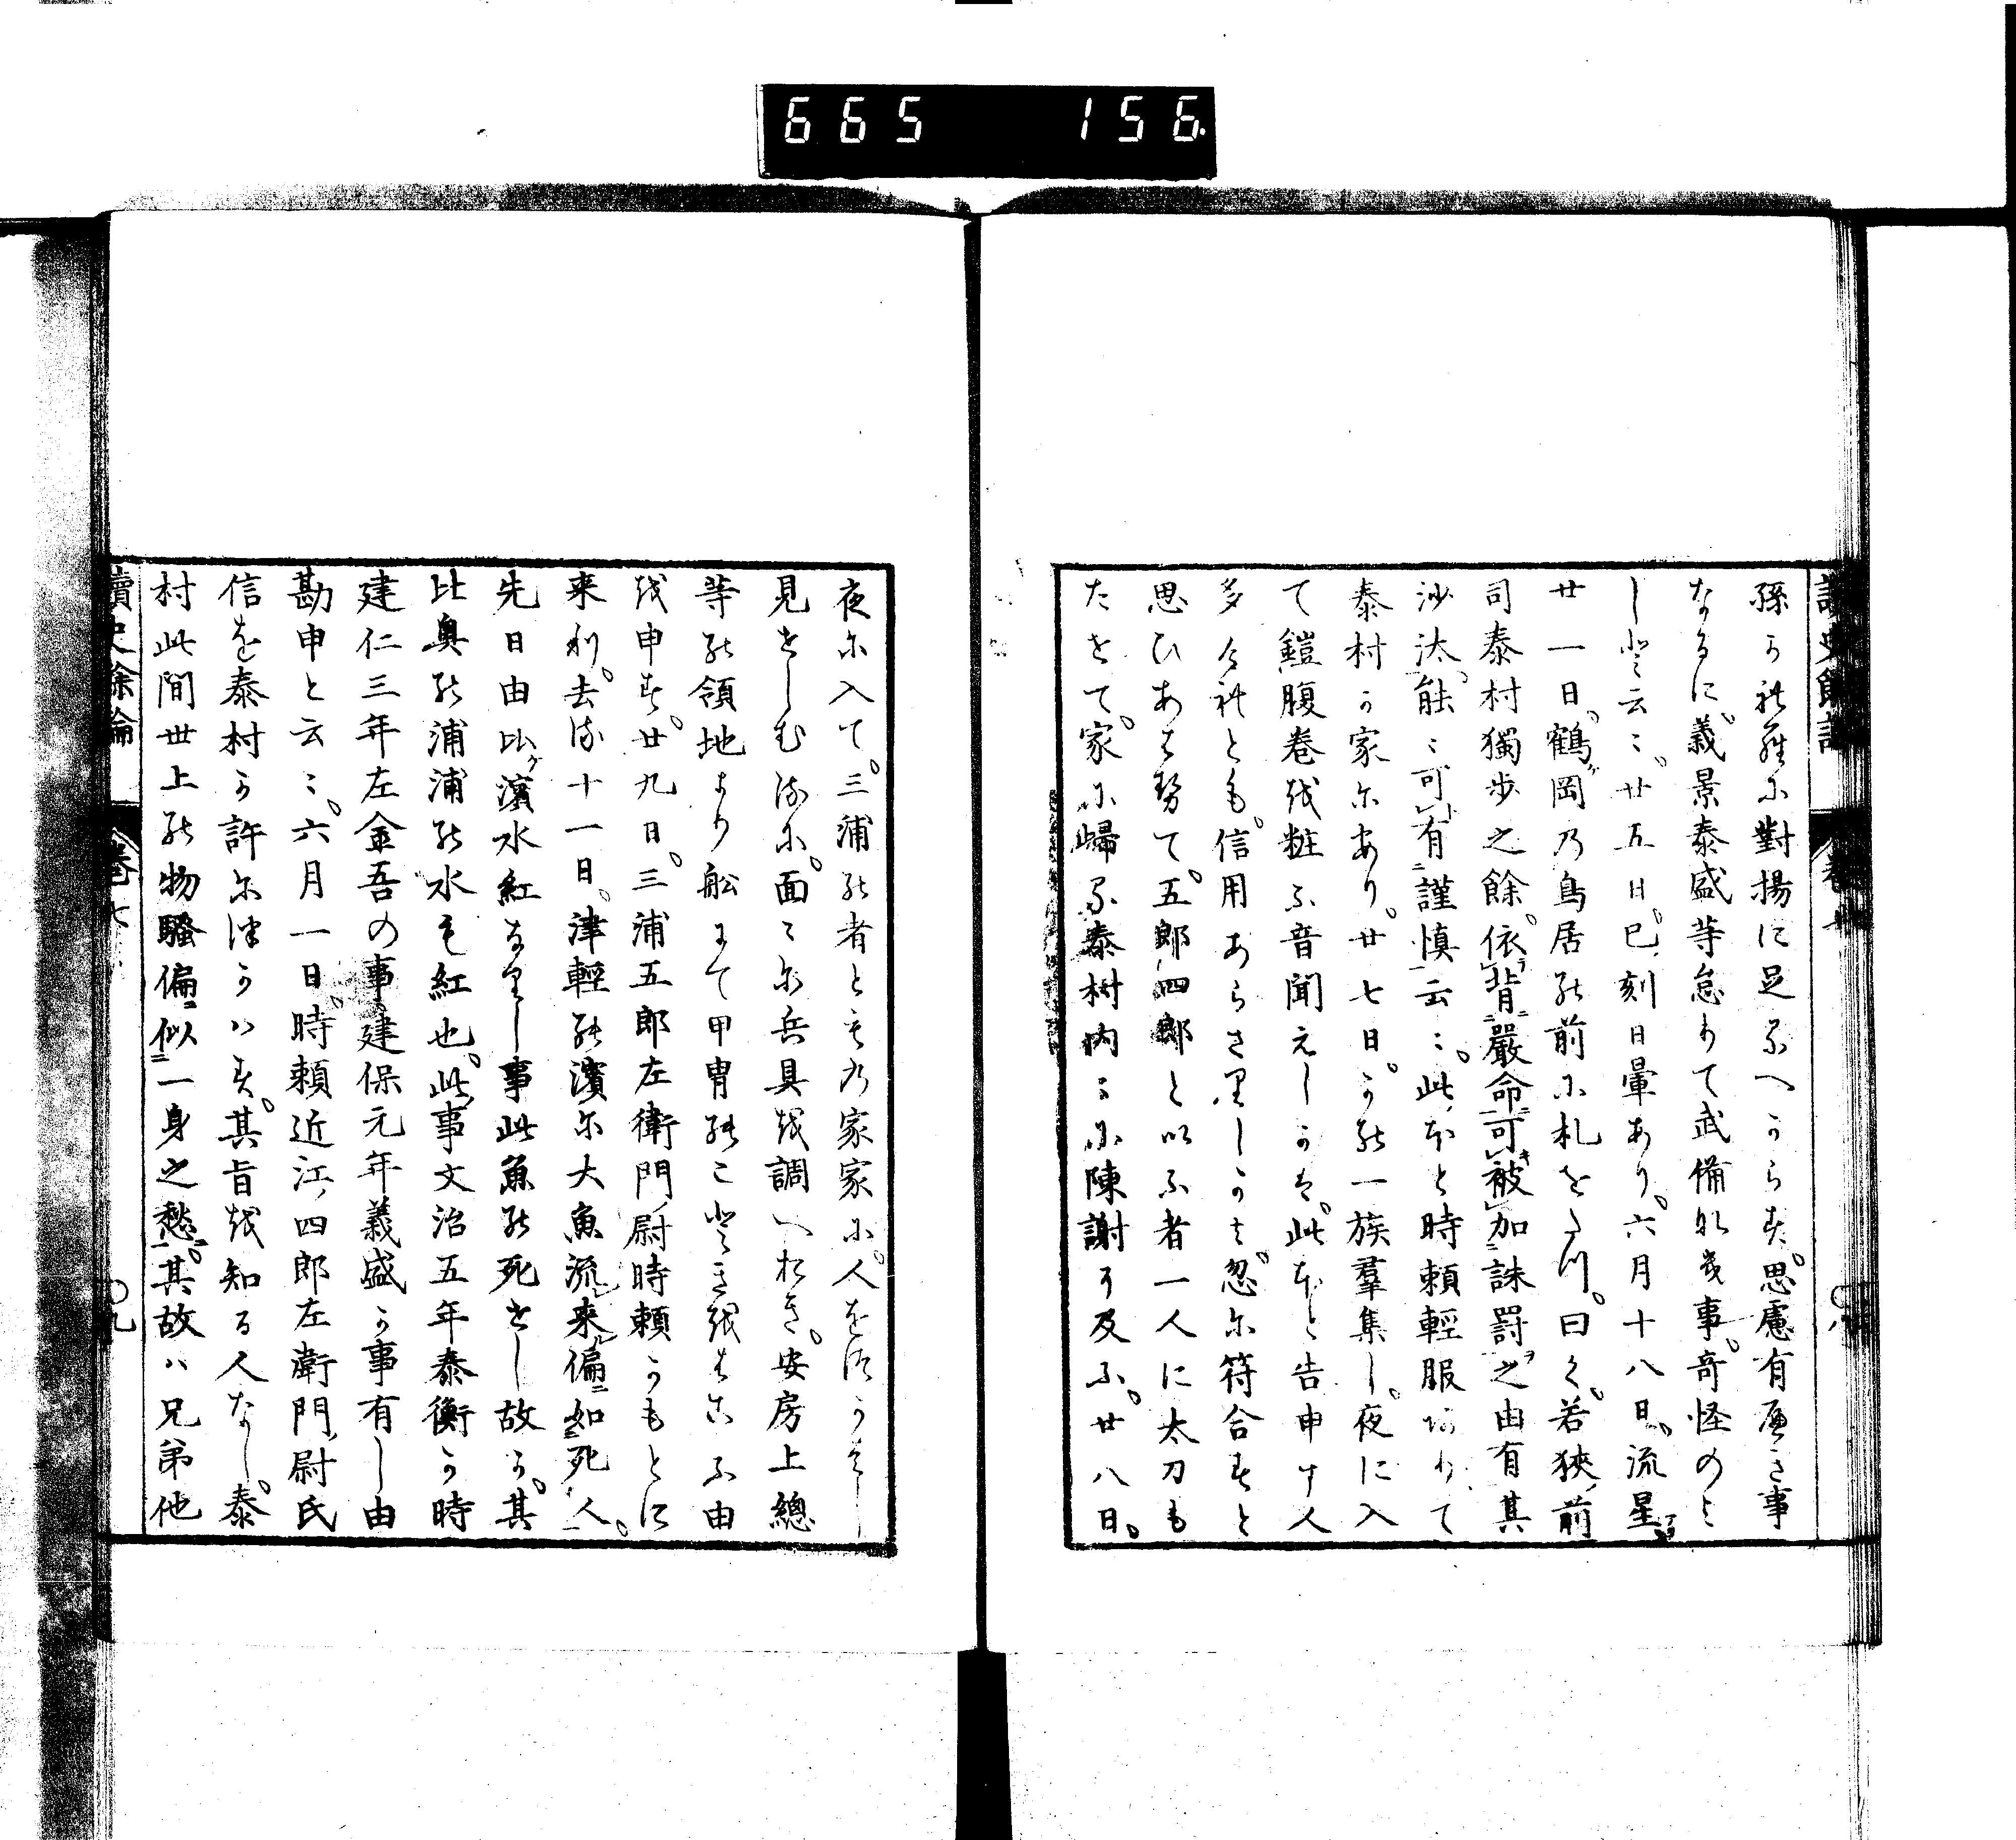 665 156
讀史餘論 卷七 〇八
孫か彼難に對揚に足るへからす思慮有へき事
なるに義景泰盛等怠りて武備なき事奇怪のよ
し云々廿五日巳刻日暈あり六月十八日流星
廿一日鶴岡乃鳥居の前に札をたつ曰く若狹前
司泰村獨歩之餘依背嚴命可被加誅罰之由有其
沙汰能々可有謹愼云々此ほと時頼輕服ありて
泰村か家にあり廿七日かの一族羣集し夜に入
て鎧腹巻を粧ふ音聞えしかは此ほと告申す人
多くれとも信用あらさりしかと忽に符合すと
思ひあはせて五郎四郎といふ者一人に太刀も
たせて家に歸る泰村内々に陳謝に及ふ廿八日
夜に入て三浦の者ともの家家に人をつかはし
見せしむるに面々に兵具を調へおき安房上總
等の領地より舩にて甲冑のこときをはこふ由
を申す廿九日三浦五郎左衛門尉時頼かもとに
来り去る十一日津輕の濱に大魚流来偏如死人
先日由比濱水紅なりし事此魚の死せし故か其
比奥の浦浦の水も紅也此事文治五年泰衡か時
建仁三年左金吾の事建保元年義盛か事有し由
勘申と云々六月一日時頼近江四郎左衛門尉氏
信を泰村か許につかはす其旨を知る人なし泰
村此間世上の物騷偏似一身之愁其故ハ兄弟他
讀史餘論 卷七 〇九